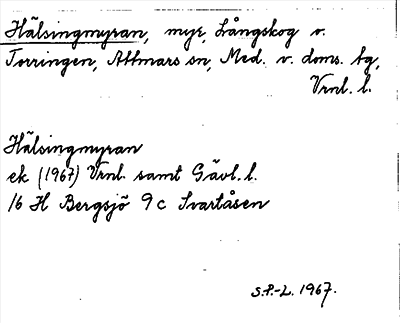 Hälsingmyran, myr, Långskog v.
Torringen, Attmars sn, Med. v. doms. tg,
Vrnl. l.
Hälsingmyran
ek (1967) Vrnl. samt Gävl. l.
16 H Bergsjö 9 c Svartåsen
S.P.-L. 1967.